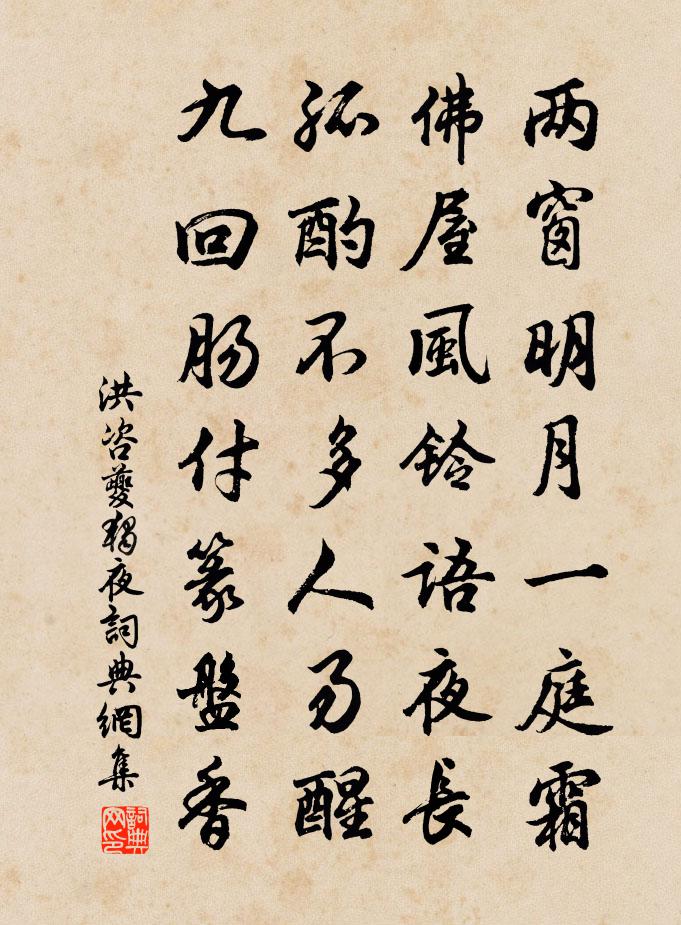 两窗明月一庭霜
佛屋風铃語夜長
孤酌不多人易醒
九回肠付篆盤香
洪咨夔獨夜詞典網集
詞典网印